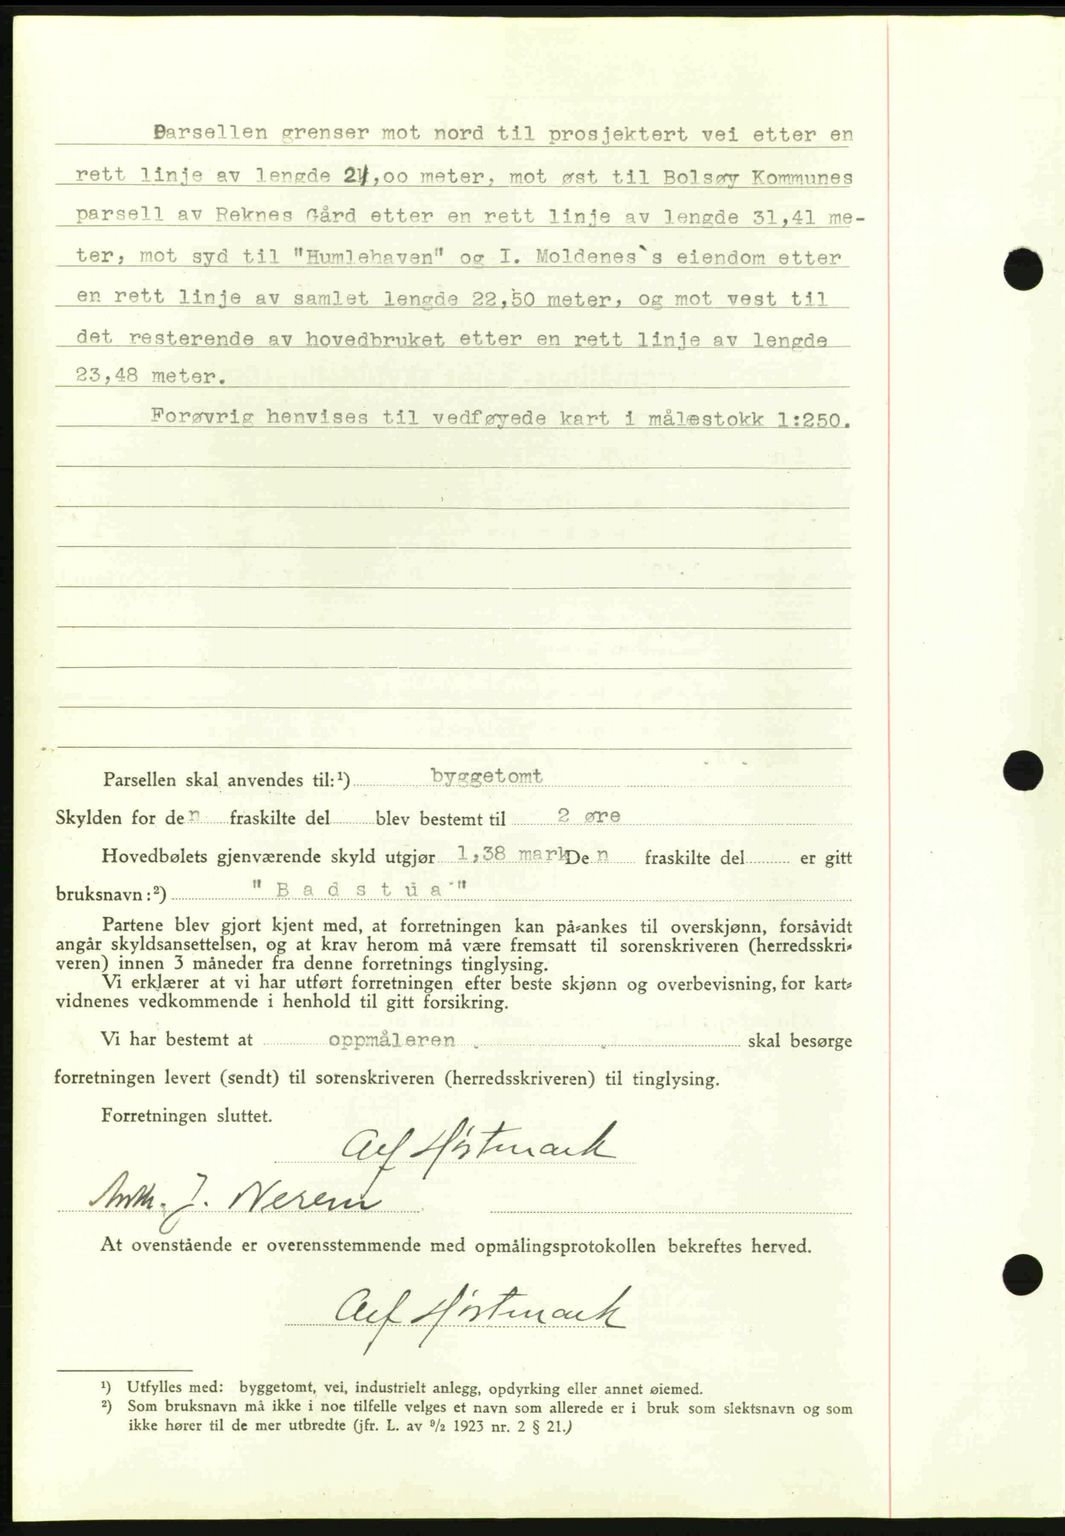 Parsellen grenser mot nord til prosjektert vei etter en
rett linje av lengde 24,00 meter, mot øst til Bolsøy Kommunes
parsell av Reknes Gård etter en rett linje av lengde 31,41 me-
ter, mot syd til "Humlehaven" og I. Moldenes`s eiendom etter
en rett linje av samlet lengde 22,50 meter, og mot vest til
det resterende av hovedbruket etter en rett linje av lengde
23,48 meter.
Forøvrig henvises til vedføyede kart i målestokk 1:250.
Parsellen skal anvendes til:¹) byggetomt
Skylden for den fraskilte del blev bestemt til 2 øre
Hovedbølets gjenværende skyld utgjør 1,38 mark Den fraskilte del er gitt
bruksnavn:²) "Badstua"
Partene blev gjort kjent med, at forretningen kan på-ankes til overskjønn, forsåvidt
angår skyldsansettelsen, og at krav herom må være fremsatt til sorenskriveren (herredsskri-
veren) innen 3 måneder fra denne forretnings tinglysing.
Vi erklærer at vi har utført forretningen efter beste skjønn og overbevisning, for kart-
vidnenes vedkommende i henhold til gitt forsikring.
Vi har bestemt at oppmåleren skal besørge
forretningen levert (sendt) til sorenskriveren (herredsskriveren) til tinglysing.
Forretningen sluttet.
Alf Høstmark
Anth. J. Nerem
At ovenstående er overensstemmende med opmålingsprotokollen bekreftes herved.
Alf Høstmark
¹) Utfylles med: byggetomt, vei, industrielt anlegg, opdyrking eller annet øiemed.
²) Som bruksnavn må ikke i noe tilfelle velges et navn som allerede er i bruk som slektsnavn og som
ikke hører til de mer utbredte (jfr. L. av 9/2 1923 nr. 2 § 21.)